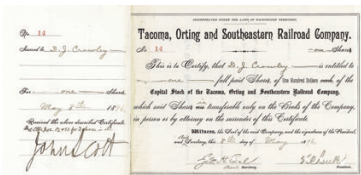 No. 14
Issued to D. J. Crowley
For one Shares
May 8th
Received the above described Certificate
John Scott
INCORPORATED UNDER THE LAWS OF WASHINGTON TERRITORY.
Tacoma, Orting and Southeastern Railroad Company.
No. 14 one Shares
This is to Certify, that D. J. Crowley is entitled to
one full paid Shares, of One Hundred Dollars each, of the
Capital Stock of the Tacoma, Orting and Southeastern Railroad Company,
which said Shares are transferable only on the Books of the Company,
in person or by attorney on the surrender of this Certificate.
Witness, the Seal of the said Company, and the signatures of the President
and Secretary, this 8th day of May
Secretary. President.